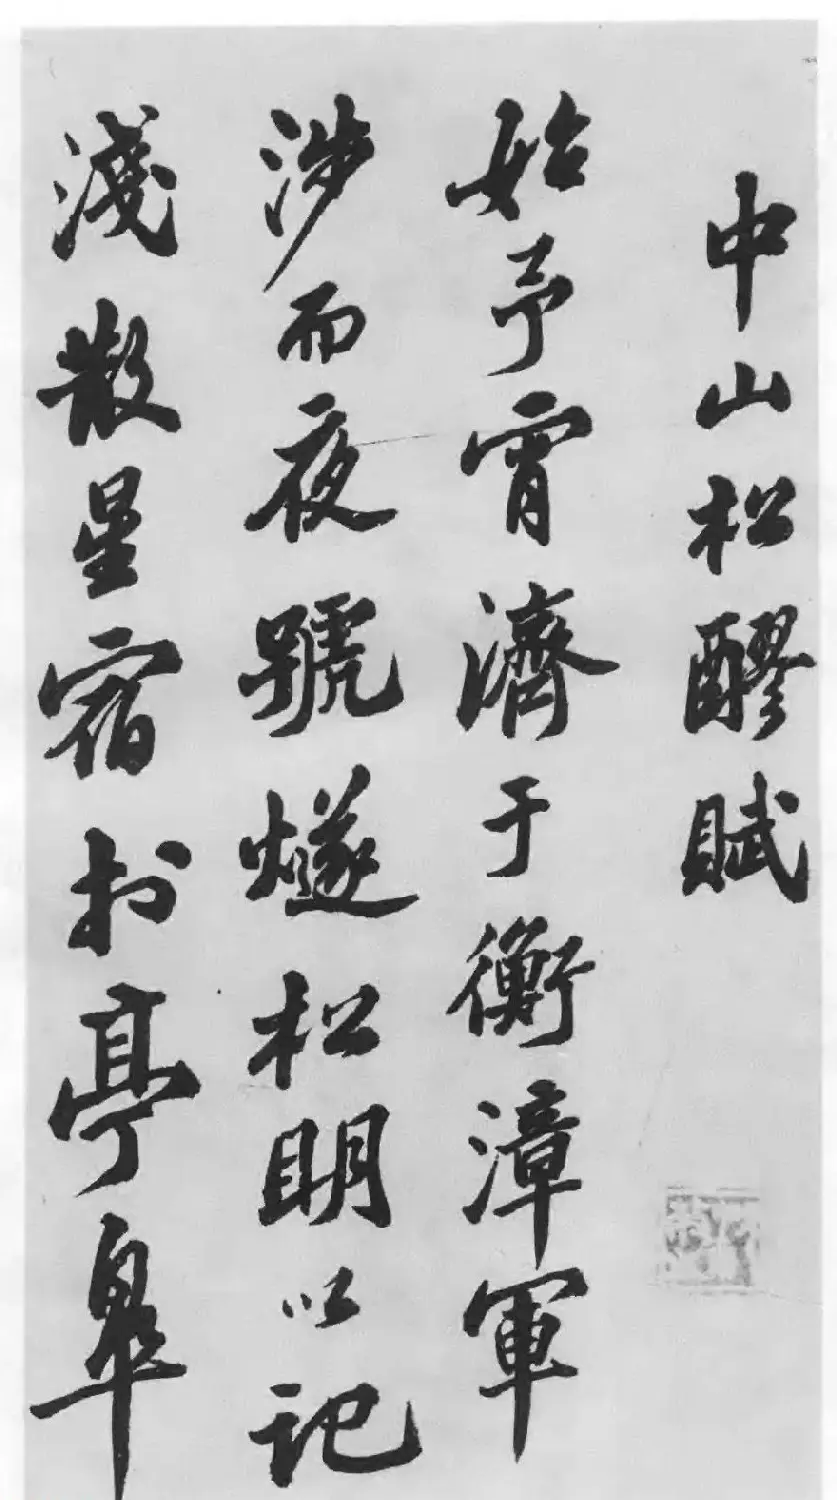 中山松醪賦
始予宵濟于衡漳軍
涉而夜號燧松明以記
淺散星宿於亭皋